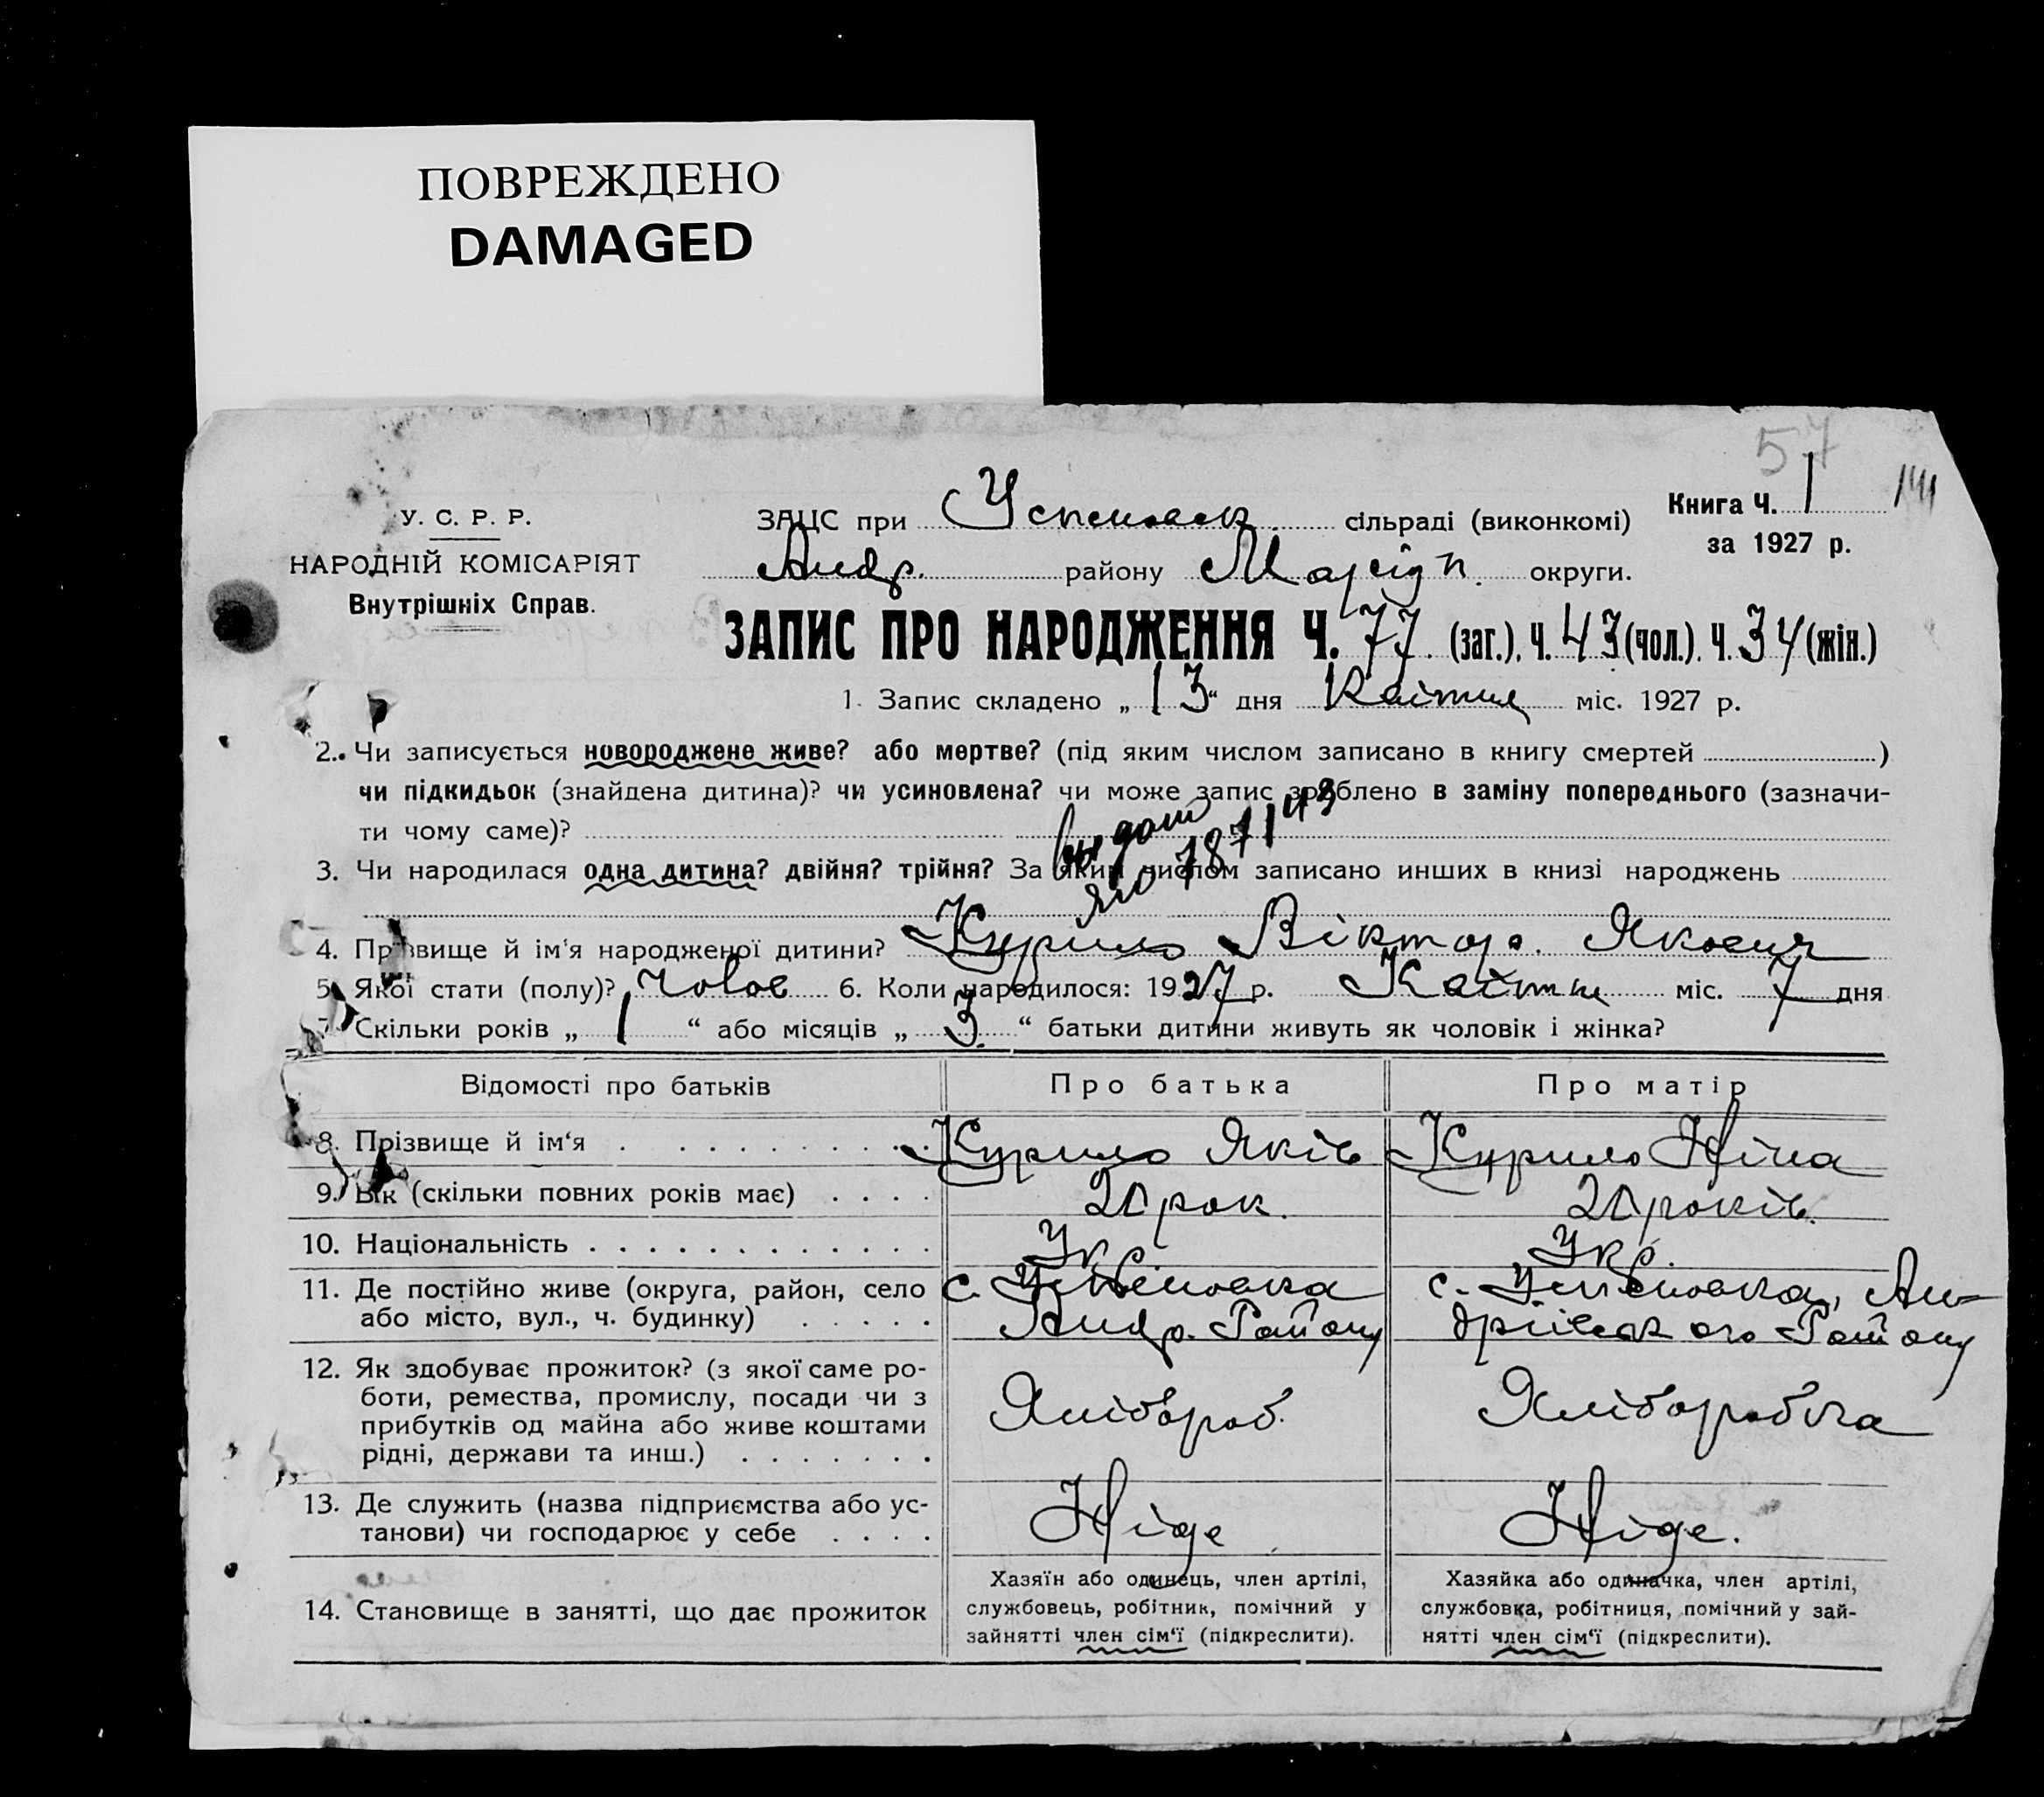 ПОВРЕЖДЕНО
DAMAGED
57
Книга Ч. 1
за 1927 р.
У. С. Р. Р.
НАРОДНІЙ КОМІСАРІЯТ
Внутрішніх Справ.
ЗАЦС при Успеновск. сільраді (виконкомі)
Андр. району Маріюп. округи.
ЗАПИС ПРО НАРОДЖЕННЯ Ч. 77. (заг.), Ч. 43 (чол.). Ч. 34 (жін.)
1. Запис складено „ 13 “ дня Квітня міс. 1927 р.
2. Чи записується новороджене живе? або мертве? (під яким числом записано в книгу смертей )
чи підкидьок (знайдена дитина)? чи усиновлена? чи може запис зроблено в заміну попереднього (зазначи-
ти чому саме)?
3. Чи народилася одна дитина? двійня? трійня? За яким числом записано инших в книзі народжень
4. Прізвище й ім'я народженої дитини? Курило Віктор. Якович
5. Якої стати (полу)? Чолов 6. Коли народилося: 1927 р. Квітня міс. 7 дня
7. Скільки років „ 1 “ або місяців „ 3. “ батьки дитини живуть як чоловік і жінка?
Відомості про батьків Про батька Про матір
8. Прізвище й ім‘я Курило Яків Курило Ніна
9. Вік (скільки повних років має) 20 рок. 20 років.
10. Національність Укр Укр.
11. Де постійно живе (округа, район, село с. Успеновка с. Успеновка, Ан-
або місто, вул., ч. будинку) Андр. Району дріївського Району
12. Як здобуває прожиток? (з якої саме ро-
боти, ремества, промислу, посади чи з Хлібороб. Хліборобка
прибутків од майна або живе коштами
рідні, держави та инш.)
13. Де служить (назва підприємства або ус- Ніде Ніде.
танови) чи господарює у себе
14. Становище в занятті, що дає прожиток
Хазяїн або одинець, член артілі,
службовець, робітник, помічний у
зайнятті член сім‘ї (підкреслити).
Хазяйка або одиначка, член артілі,
службовка, робітниця, помічний у зай-
нятті член сім‘ї (підкреслити).